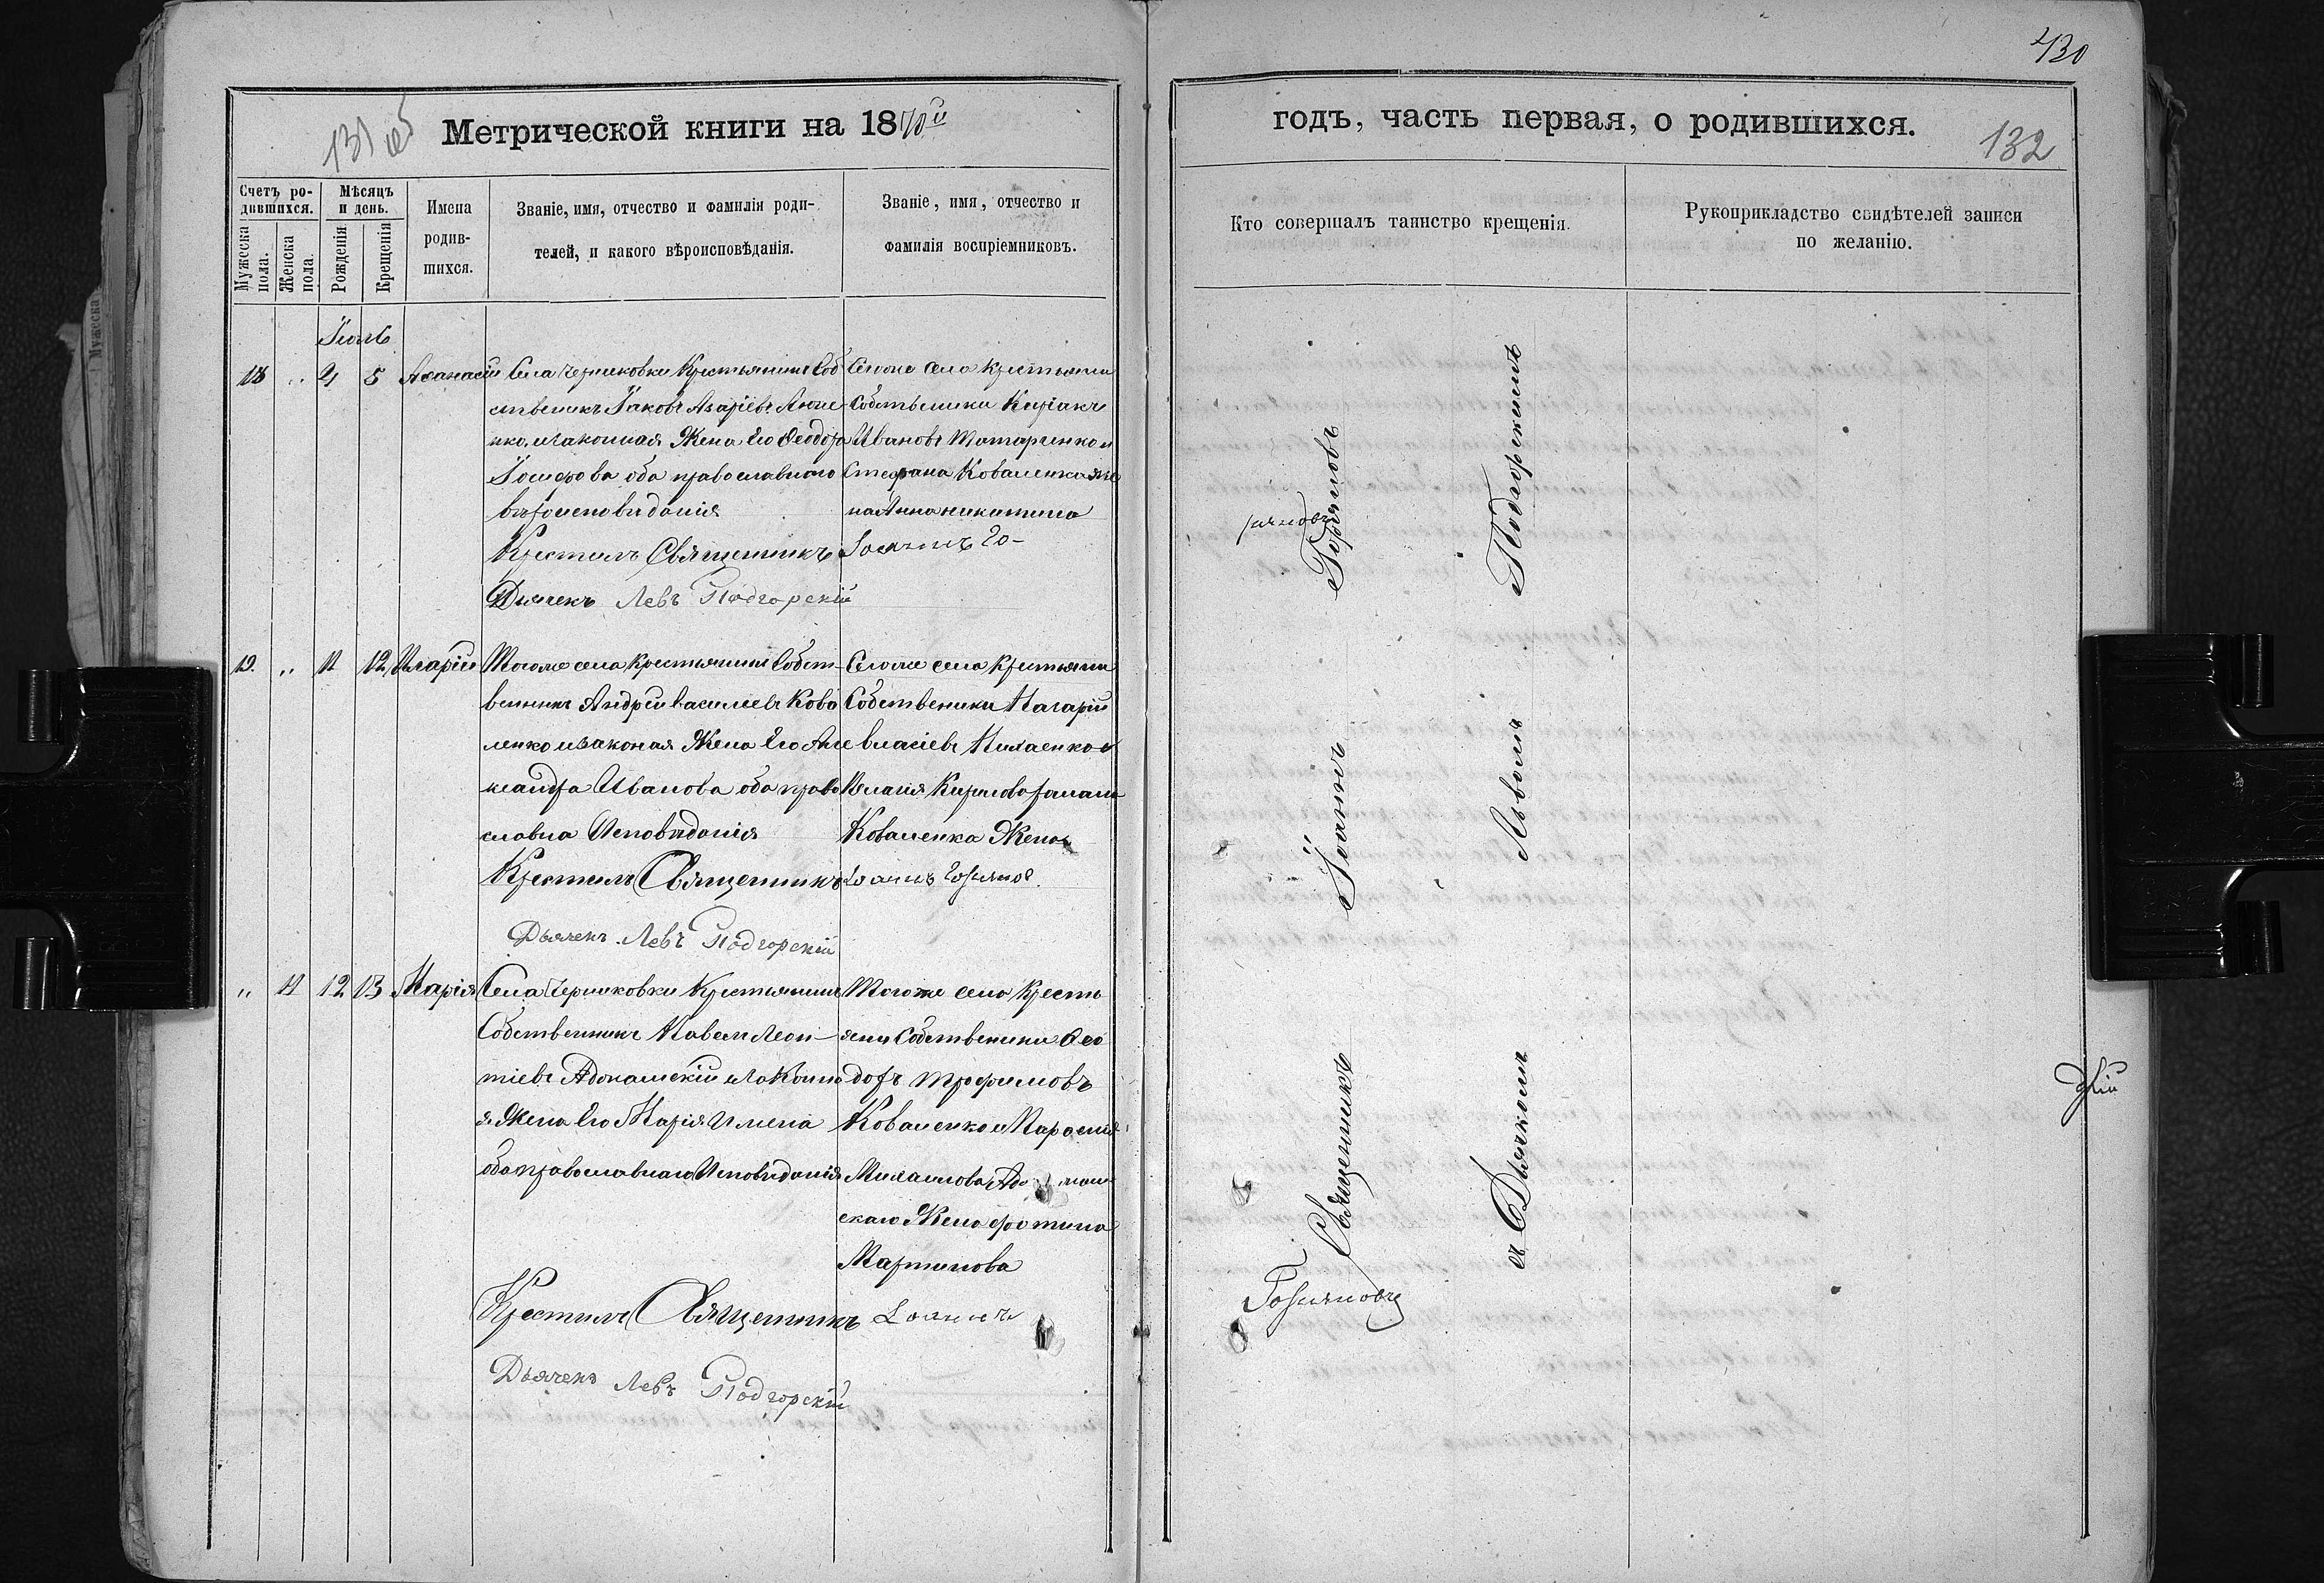 430
131 об
Метрической книги на 1870й
годъ, часть первая, о родившихся.
132
Счетъ ро-
дившихся.
Мужеска пола.
Женска пола.
Мѣсяцъ
и день.
Рожденія
Крещенія
Имена
родив-
шихся.
Званіе, имя, отчество и фамилія роди-
телей, и какого вѣроисповѣданія.
Званіе, имя, отчество и
фамилія воспріемниковъ.
Кто совершалъ таинство крещенія.
Рукоприкладство свидѣтелей записи
по желанію.
Іюль
18 " 4 5 Афанасій
Села Черниковки Крестьянинъ Соб
ственикъ Іаковъ Азаріевъ
нко, изаконная Жена Его Феодора
Іосифова оба православнаго
вѣроисповѣданія
Крестилъ Священникъ
Дьячекъ Левъ Подгорскій
Сегоже села Крестьяни
Собственики Киріакъ
Ивановъ Тотарченко и
Стефана Коваленка же
на Анна никитина
Іоаннъ Го-
ряновъ
19. " 11 12 Иларій
Тогоже села Крестьянинъ Собст-
венникъ Андрей василіевъ Кова
ленко изаконая Жена Его Але
ксандра Иванова оба право
славна Исповѣданія
Крестилъ Священникъ
Дьячекъ Левъ Подгорскій
Сегоже села Крестьяни
Собственики
власіевъ и
Коваленка Жена
Іоаннъ Горянов
" 11 12 13 Марія
Села Черниковки Крестьянинъ
Собственникъ Павелъ Леон-
тіевъ изаконна
я Жена Его Марія
оба православнаго Исповѣданія
Крестилъ Священникъ
Дьячекъ Левъ Подгорскій
Тогоже села Кресть
яни Собственики Фео
доръ трофимовъ
Коваленко и
Михаилова
скаго Жена фотина
Мартинова
Іоаннъ
Горяновъ
Священникъ Іоаннъ Горяновъ
съ Дьячкомъ Львомъ Подгорскимъ